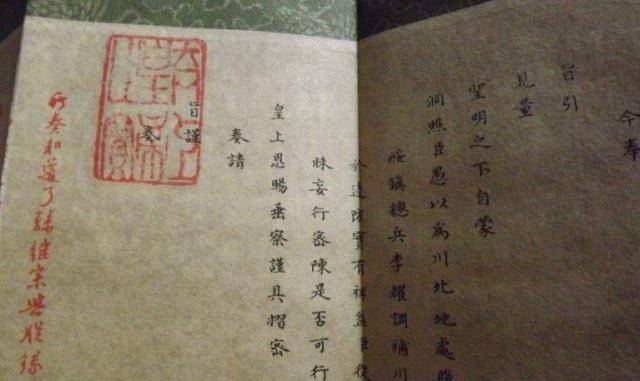 今奉
旨引
見量
聖明之下自蒙
洞照臣愚以為川北地處
綏鎮總兵李耀調補川
於邊防實有裨益臣
昧妄行密陳是否可行
皇上恩賜垂察謹具摺密
奏請
旨謹
奏
所奏知道了孫繼宗與朕